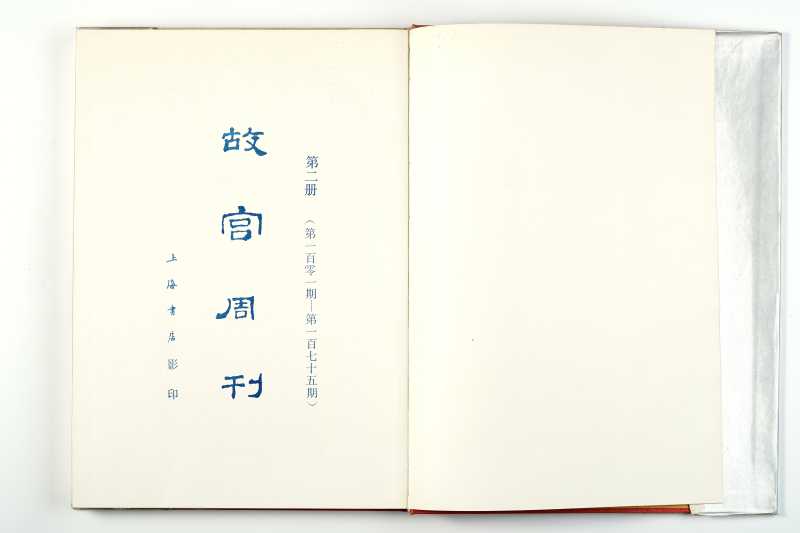 第二册 (第一百零一期—第一百七十五期)
故宫周刊
上海书店影印